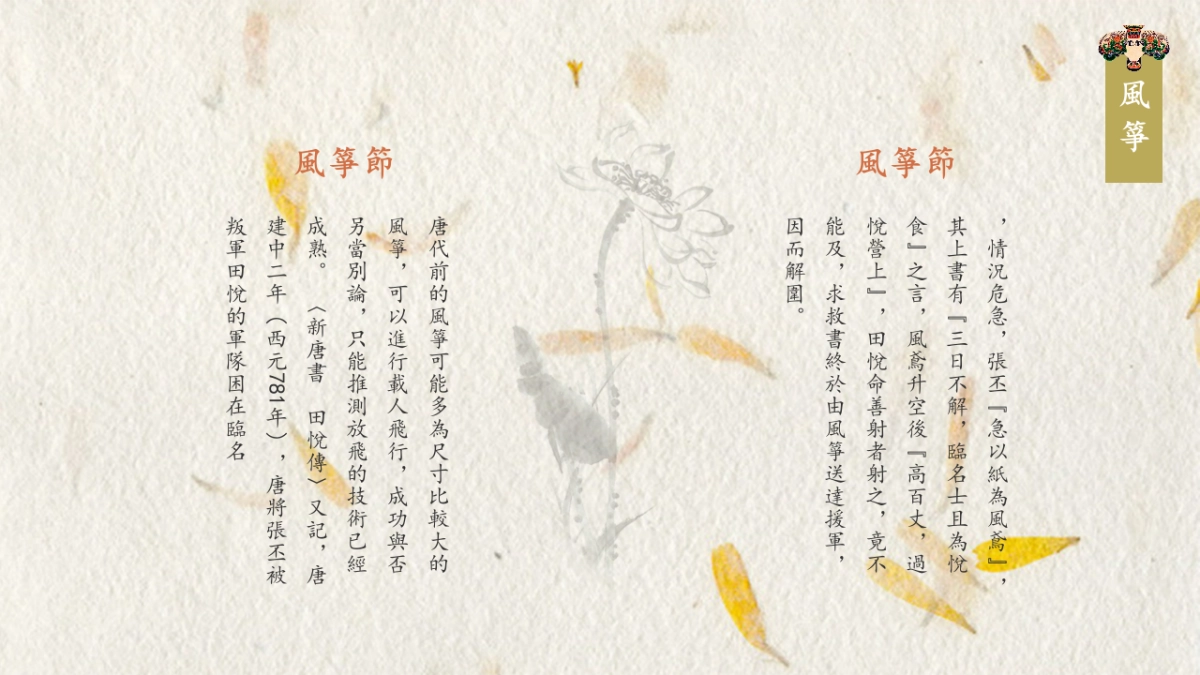 風箏
風箏節
唐代前的風箏可能多為尺寸比較大的
風箏，可以進行載人飛行，成功與否
另當別論，只能推測放飛的技術已經
成熟。〈新唐書 田悅傳〉又記，唐
建中二年（西元781年），唐將張丕被
叛軍田悅的軍隊困在臨名
風箏節
，情況危急，張丕『急以紙為風鳶』，
其上書有『三日不解，臨名士且為悅
食』之言，風鳶升空後『高百丈，過
悅營上』，田悅命善射者射之，竟不
能及，求救書終於由風箏送達援軍，
因而解圍。